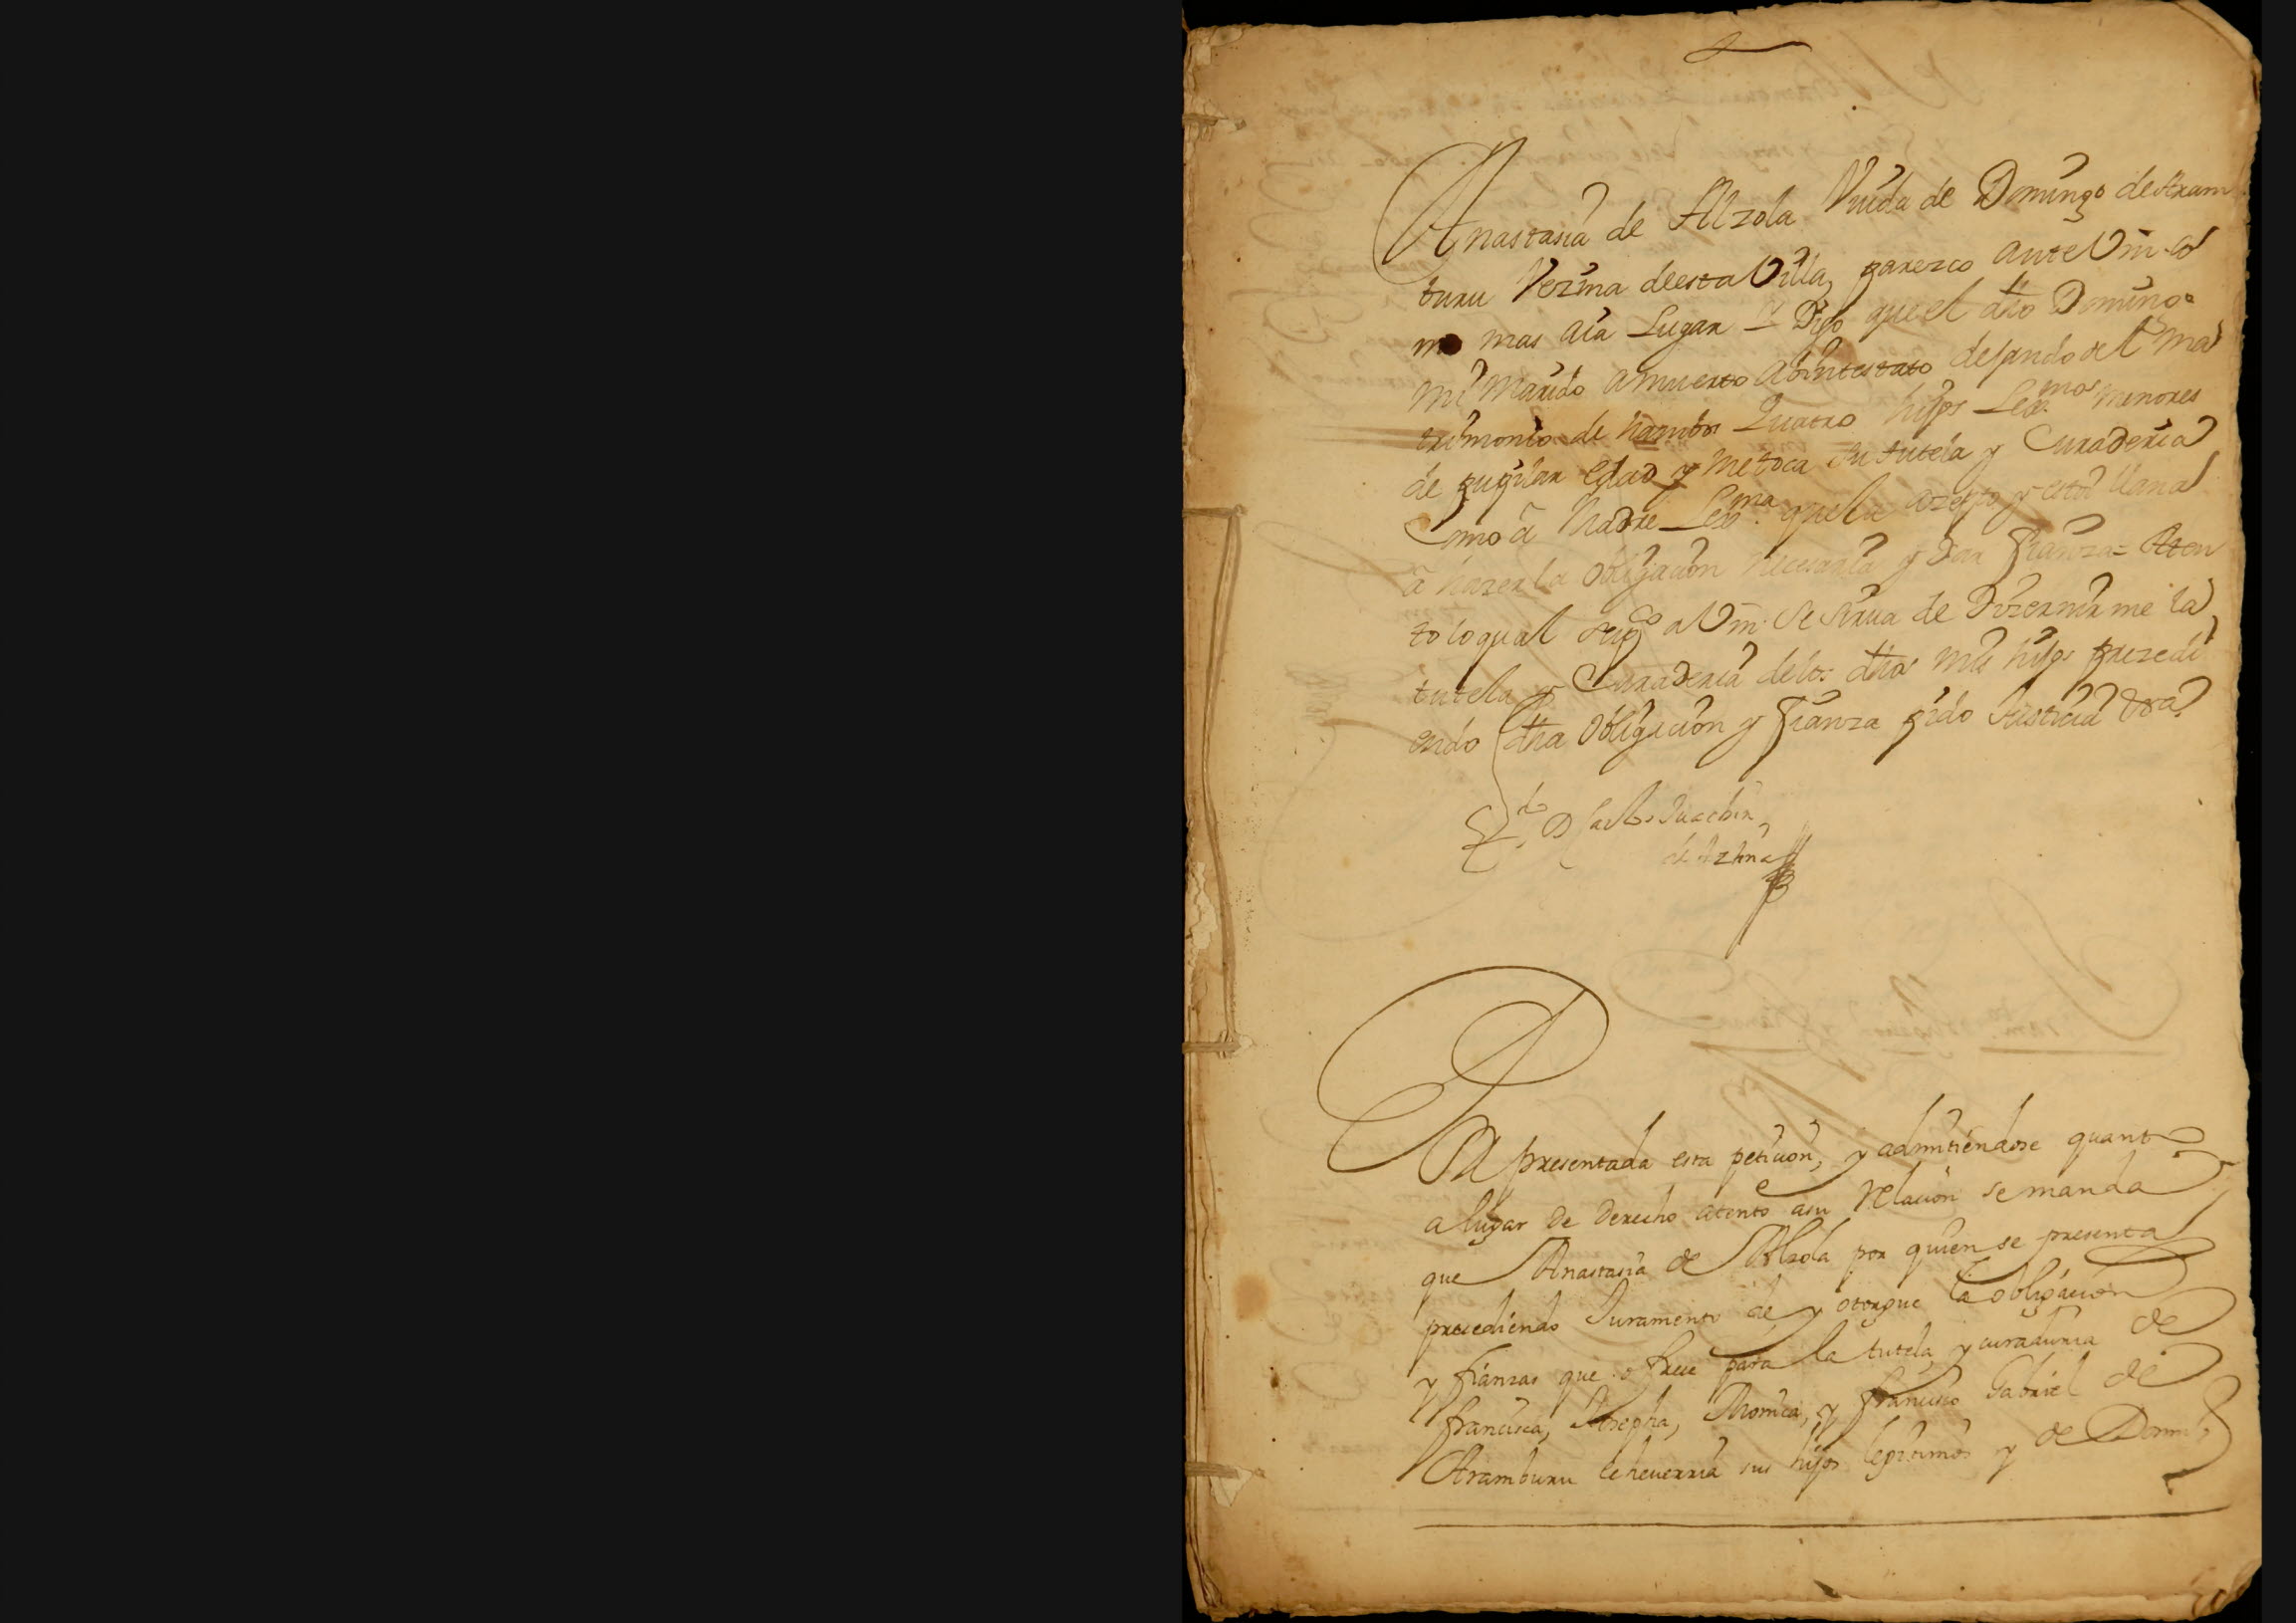 Anastasia de Alzola Viuda de Domingo de Aram
buru Vezina de esta Villa, parezco ante Vm. co
mo mas aia Lugar Y Digo que el dho Domingo
mi Marido a muerto Abintestato dejando del Ma
trimonio de hambos Quatro hijos Lexmos. menores
de pupilar edad y me toca su tutela y Curaderia
Como a Madre Lexma. que la azepto y estoi llana
a hazer la Obligacion Necesaria y Dar fianza = Aten
to lo qual supco a Vm. Se sirua de Dizernirme la
tutela y Curaderia de los dhos mis hijos prezedi
endo dha Obligacion y fianza pido Justicia
Carlos Juachin
de
Por presentada esta peticion, y admitiendose quanto
a lugar de derecho atento a su relacion se manda
que Anastasia de Alzola por quien se presenta
precediendo Juramento de y otorgue la obligacion
y fianzas que ofrece para la tutela y curaduria de
francisca, Josepha, Monica, y francisco Gabriel de
Aramburu echeuerria sus hijos legitimos y de Domi